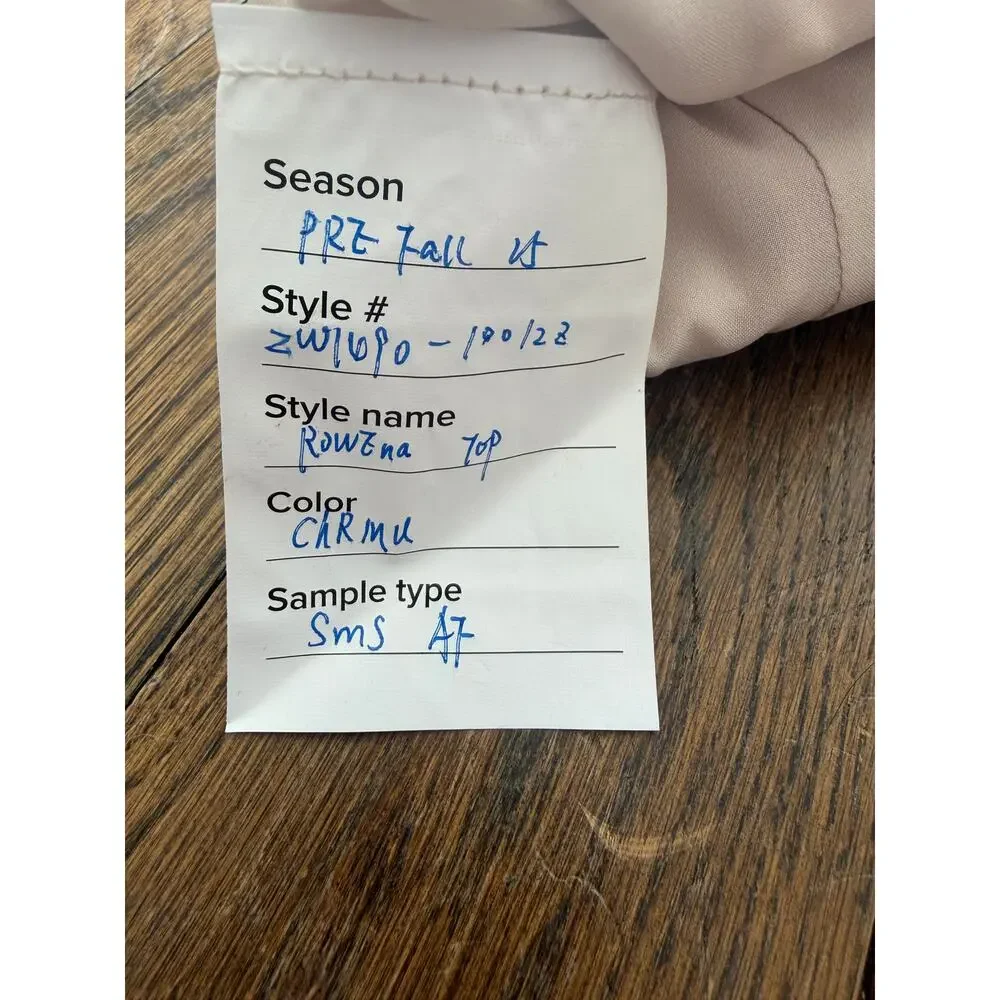 Season
PRE Fall 25
Style #
ZW1690-100128
Style name
ROWEna TOP
Color
ChRMU
Sample type
SmS AF